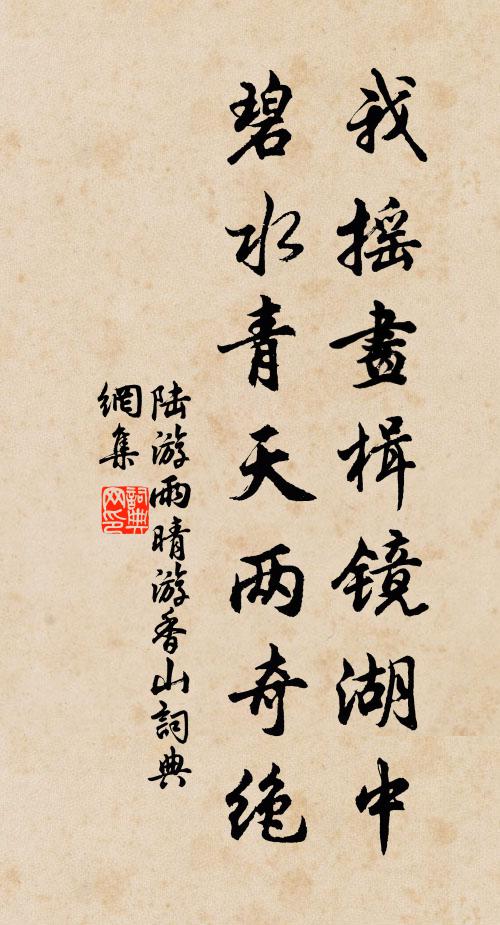 我摇畫楫镜湖中
碧水青天两奇绝
陆游雨晴游香山詞典
網集
詞典网印